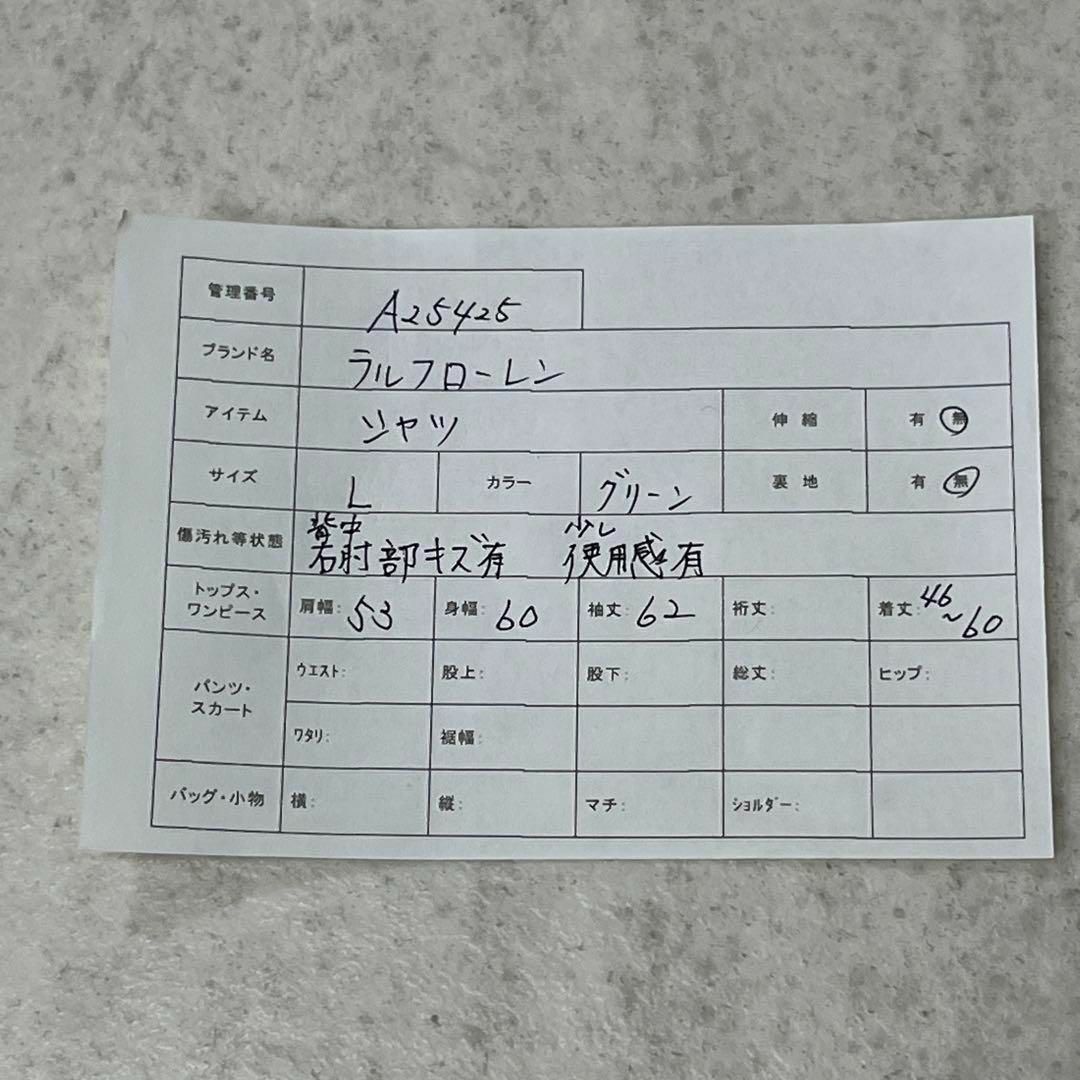 管理番号 A25425
ブランド名 ラルフローレン
アイテム シャツ 伸縮 有 無
サイズ L カラー グリーン 裏地 有 無
背中 少し
傷汚れ等状態 右肘部キズ有 使用感有
トップス・ワンピース 肩幅: 53 身幅: 60 袖丈: 62 裄丈: 着丈: 46~60
パンツ・スカート ウエスト: 股上: 股下: 総丈: ヒップ:
ワタリ: 裾幅:
バッグ・小物 横: 縦: マチ: ショルダー: